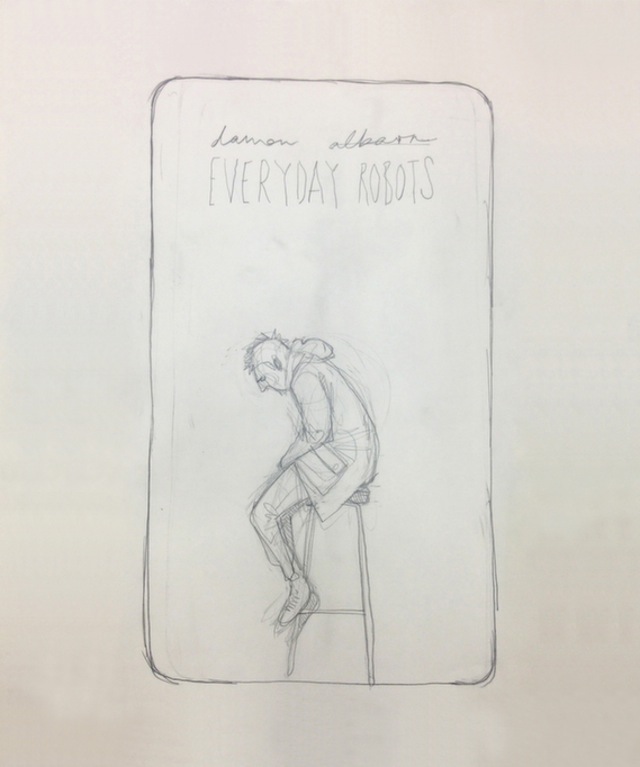 damon albarn
EVERYDAY ROBOTS